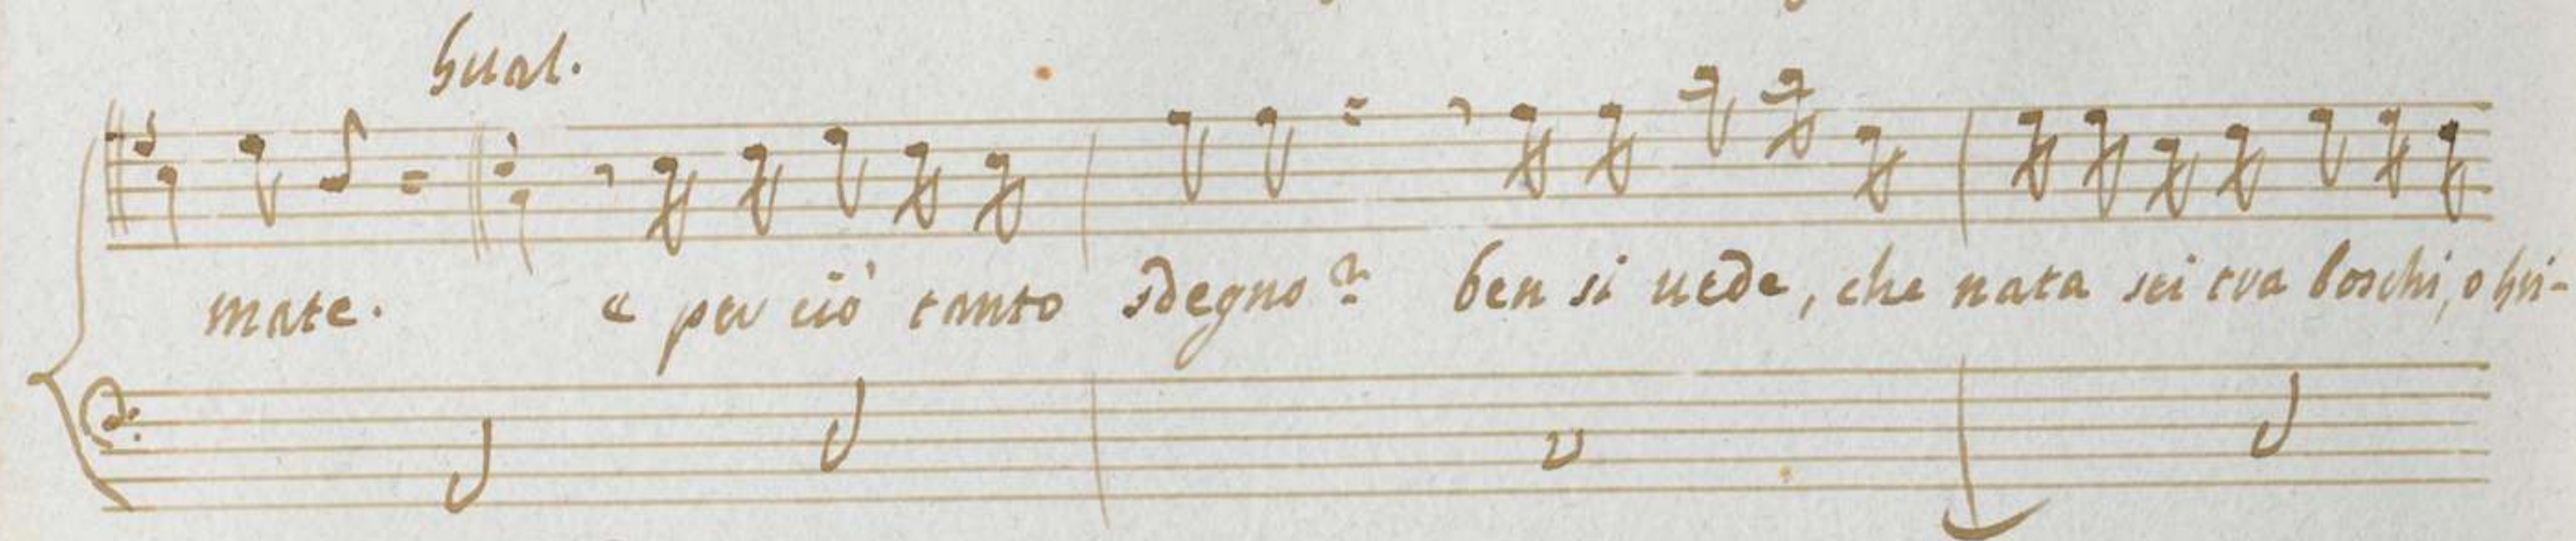 Gual.
mate. e per ciò tanto sdegno? ben si uede, che nata sei tra boschi, o Gri-